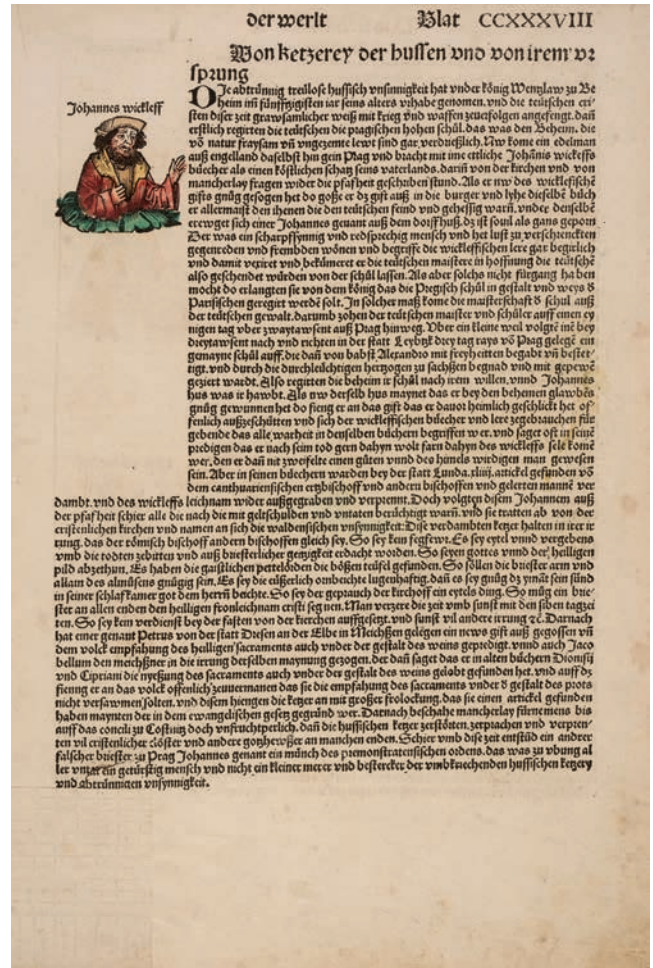 der werlt Blat CCXXXVIII
Von ketzerey der hussen vnd von irem vr
sprung
Johannes wickleff
DIe abtrünnig treülose hussisch vnsinnigkeit hat vnder könig Wentzlaw zu Be
heim im fünfftzigisten iar seins alters vrhabe genomen. vnd die teütschen cri-
sten diser zeit grawsamlicher weiß mit krieg vnd waffen zeuerfolgen angefengt. dañ
erstlich regirten die teütschen die pragischen hohen schůl. das was den Behem̄. die
vō natur fraysam vñ vngezemte lewt sind gar verdrießlich. Nw kome ein edelman
auß engelland daselbst hin gein Prag vnd bracht mit ime ettliche Johānis wickleffs
büecher als einen köstlichen schatz seins vaterlands. dariñ von der kirchen vnd von
mancherlay fragen wider die pfafheit geschriben stund. Als er nw des wicklefischē
gifts gnůg gesogen het do goße er dz gift auß in die burger vnd lyhe dieselbē büch
er allermaist den ihenen die den teütschen feind vnd gehessig warñ. vnder denselbē
erewget sich einer Johannes genant auß dem dorff huß. dz ist souil als gans geporn
Der was ein scharpffynnig vnd redsprechig mensch vnd het lust zu verschrenckten
gegenreden vnd frembden wönen vnd begriffe die wickleffischen lere gar begirlich
vnd damit vexiret vnd bekümeret er die teütschen maistere in hoffnung die teütschē
also geschendet würden von der schůl lassen. Als aber solchs nicht fürgang haben
mocht do erlangten sie von dem könig das die Pregisch schůl in gestalt vnd weys d
Parisischen geregirt werdē solt. In solcher maß kome die maisterschaft d schul auß
der teütschen gewalt. darumb zohen der teütschen maister vnd schüler auff einen ey
nigen tag vber zwaytawsent auß Prag hinweg. Vber ein kleine weil volgtē inē bey
dreytawsent nach vnd richten in der statt Leybtzk drey tag rays vō Prag gelegē ein
gemayne schůl auff. die dañ von babst Alexandro mit freyheitten begabt vñ bestet-
tigt. vnd durch die durchleüchtigen hertzogen zu sachßen begnad vnd mit gepewē
geziert wardt. Also regitten die beheim ir schůl nach irem willen. vnnd Johannes
hus was ir hawbt. Als nw derselb hus maynet das er bey den behemen glawbēs
gnůg gewunnen het do fieng er an das gift das er dauor heimlich geschlickt het of-
fenlich außzeschütten vnd sich der wickleffischen büecher vnd lere zegebrauchen für
gebende das alle warheit in denselben büchern begriffen wer. vnd saget oft in seinē
predigen das er nach seim tod gern dahyn wolt farn dahyn des wickleffs sele komē
wer. den er dañ nit zweifelte einen gůten vnnd des himels wirdigen man gewesen
sein. Aber in seinen büechern warden bey der statt Lunda. xliiij. artickel gefunden vō
dem canthuariensischen ertzbischoff vnd andern bischoffen vnd gelerten mannē ver
dambt. vnd des wickleffs leichnam wider außgegraben vnd verprennt. Doch volgten disem Johannem auß
der pfafheit schier alle die nach die mit geltschulden vnd vntaten berüchtigt warñ. vnd sie tratten ab von der
cristenlichen kirchen vnd namen an sich die waldensischen vnsynnigkeit: Dise verdambten ketzer halten in irer ir
rung. das der römisch bischoff andern bischoffen gleich sey. So sey kein fegfewr. Es sey eytel vnnd vergebens
vmb die todten zebitten vnd auß briesterlicher geytzigkeit erdacht worden. So seyen gottes vnnd der heilligen
pild abzethun. Es haben die gaistlichen pettelörden die bößen teüfel gefunden. So söllen die briester arm vnd
allain des almůsens gnügig sein. Es sey die eüßerlich ornbeichte lugenhaftig. dañ es sey gnůg dz ymāt sein sünd
in seiner schlafkamer got dem herrñ beichte. So sey der geprauch der kirchoff ein eytels ding. So můg ein brie-
ster an allen enden den heilligen fronleichnam cristi segnen. Man verzere die zeit vmb sunst mit den siben tagzei
ten. So sey kein verdienst bey der fasten von der kierchen auffgesetzt. vnd sunst vil andere irrung ⁊c. Darnach
hat einer genant Petrus von der statt Dresen an der Elbe in Meichßen gelegen ein news gift auß gegossen vñ
dem volck empfahung des heilligen sacraments auch vnder der gestalt des weins gepredigt. vnnd auch Jaco
bellum den meichßner in die irrung derselben maynung gezogen. der dañ saget das er in alten büchern Dionisij
vnd Cipriani die nyeßung des sacraments auch vnder der gestalt des weins gelobt gefunden het. vnd auff dz
fienng er an das volck offenlich zeuuermanen das sie die empfahung des sacraments vnder d gestalt des prots
nicht versawmen solten. vnd disem hiengen die ketzer an mit großer frolockung. das sie einen artickel gefunden
haben maynten der in dem ewangelischen gesetz gegründ wer. Darnach beschahe mancherlay fürnemens bis
auff das concili zu Costnitz doch vnfruchtperlich. dañ die hussischen ketzer zerstörten. zerprachen vnd verpren-
ten vil cristenlicher clöster vnd andere gotzhewßer an manchen enden. Schier vmb dise zeit entstůnd ein andrer
falscher briester zu Prag Johannes genant ein münch des premonstratensischen ordens. das was zu vbung al
ler vnzat ein getürstig mensch vnd nicht ein kleiner merer vnd bestercker der vmbkriechenden hussischen ketzery
vnd abtrünnigen vnsynnigkeit.